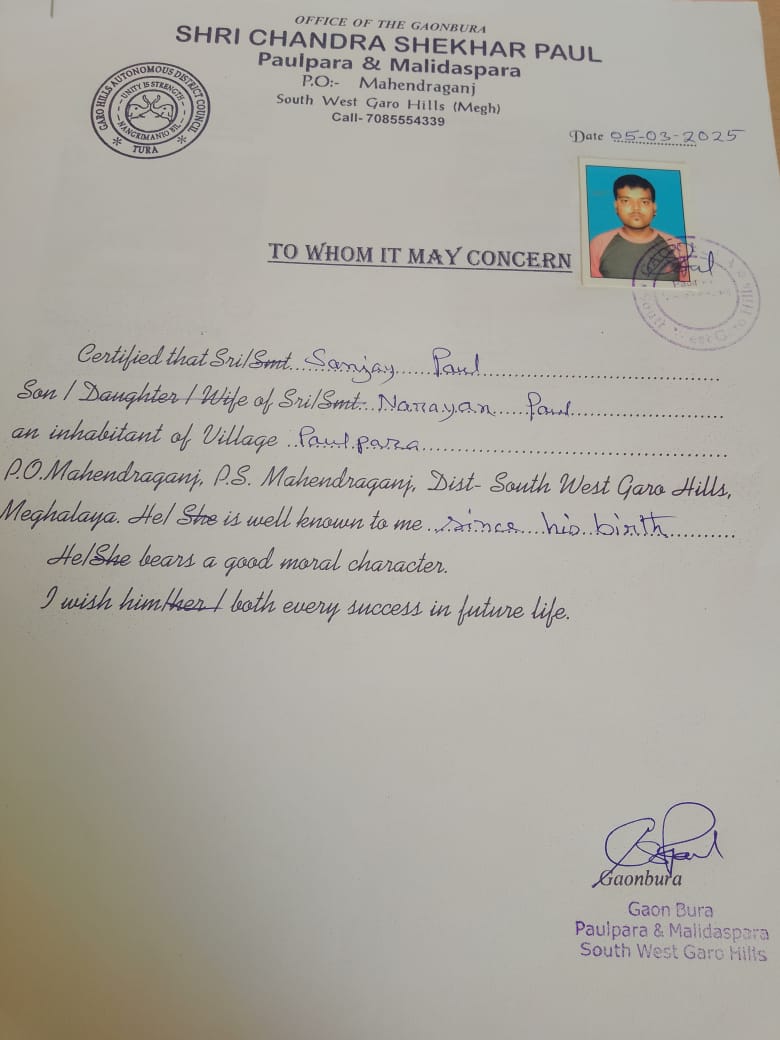 OFFICE OF THE GAONBURA
SHRI CHANDRA SHEKHAR PAUL
Paulpara & Malidaspara
P.O:- Mahendraganj
South West Garo Hills (Megh)
Call- 7085554339
GARO HILLS AUTONOMOUS DISTRICT COUNCIL
UNITY IS STRENGTH
TURA
Date 05-03-2025
TO WHOM IT MAY CONCERN
Certified that Sri/Smt. Sanjay Paul
Son / Daughter / Wife of Sri/Smt. Narrayan Paul
an inhabitant of Village Paulpara
P.O.Mahendraganj, P.S. Mahendraganj, Dist- South West Garo Hills,
Meghalaya. He/ She is well known to me since his birth
He/She bears a good moral character.
I wish him/her / both every success in future life.
Gaonbura
Gaon Bura
Paulpara & Malidaspara
South West Garo Hills